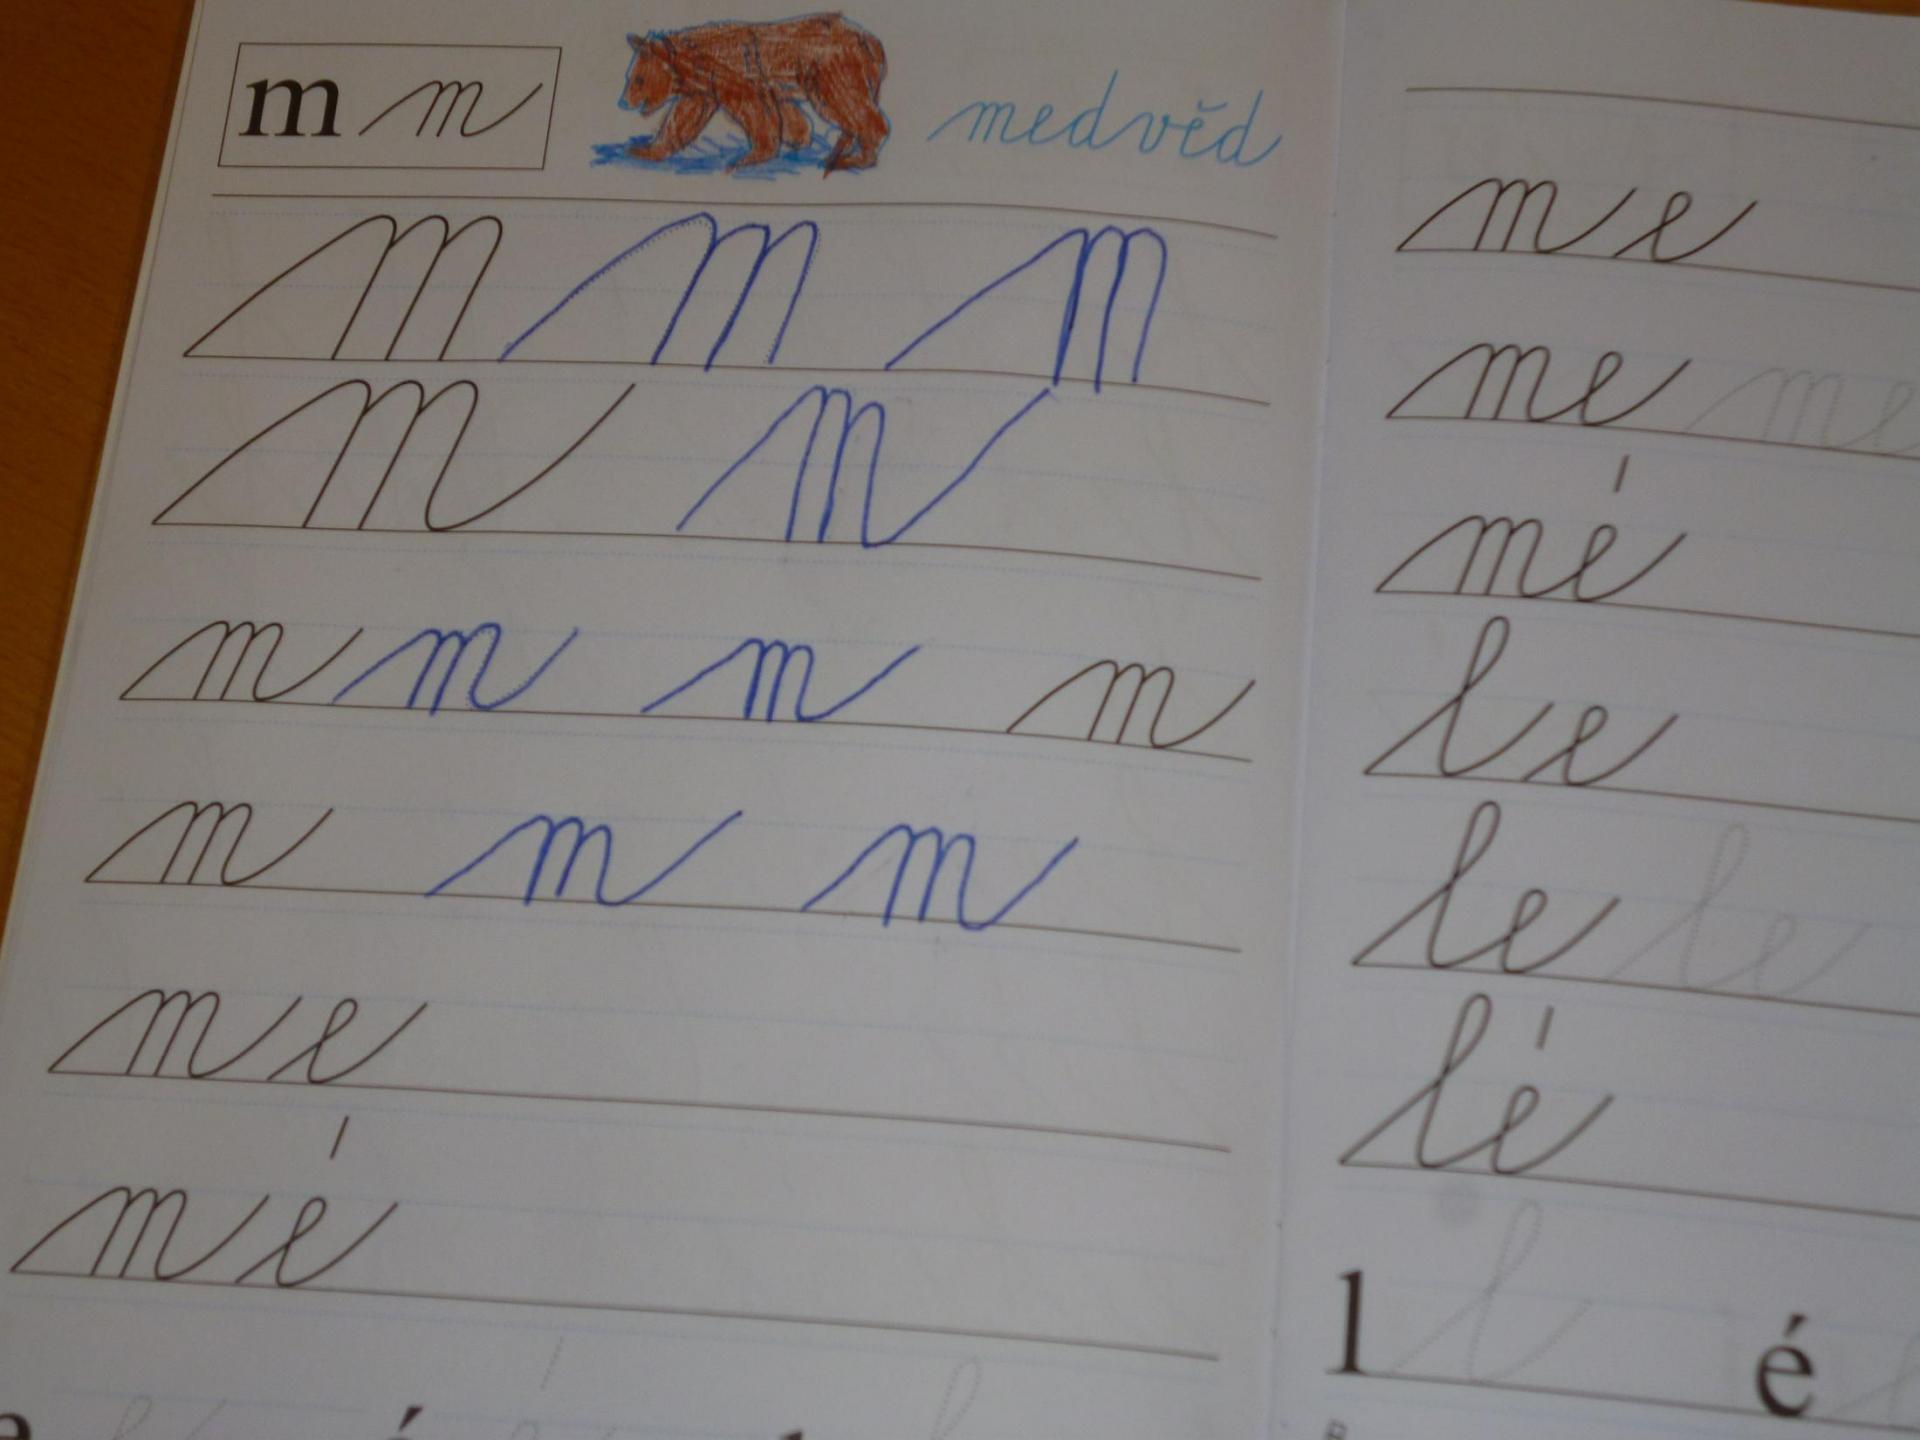 m m medvěd
m m m
m m
m m m m
m m m
m e
m é
e é l
m e
me me
mé
l e
le le
lé
l l é